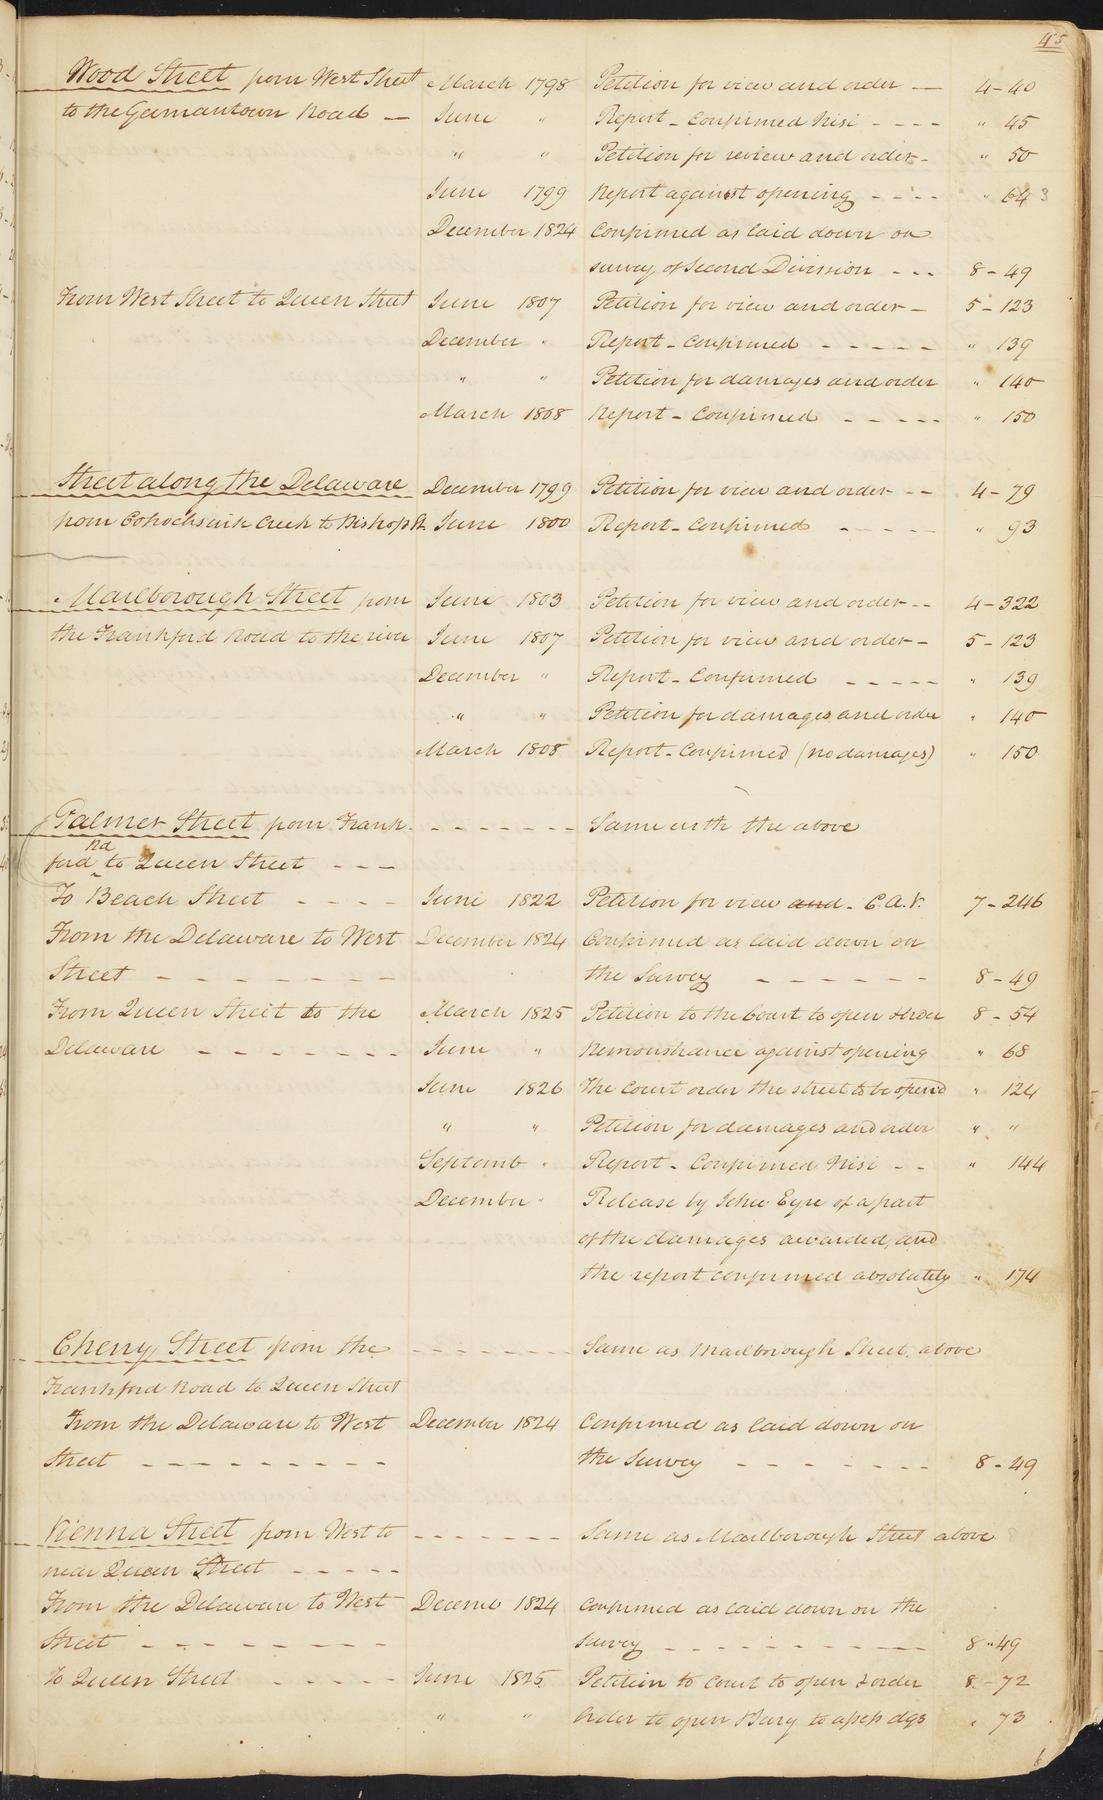 45
Wood Street from West Street March 1798 Petition for view and order — 4-40
to the Germantown Road — June " Report - Confirmed Nisi - - - - " 45
" " Petition for review and order - " 50
June 1799 Report against opening - - - - " 64 3
December 1824 Confirmed as laid down on
survey of Second Division - - - 8-49
From West Street to Queen Street June 1807 Petition for view and order - 5-123
December " Report - Confirmed - - - - - " 139
" " Petition for damages and order " 140
March 1808 Report - Confirmed - - - - - " 150
Street along the Delaware December 1799 Petition for view and order - - 4-79
from Cohocksink Creek to Bishop St. June 1800 Report - Confirmed - - - - - " 93
Marlborough Street from June 1803 Petition for view and order - - 4-322
the Frankford Road to the river June 1807 Petition for view and order - 5-123
December " Report - Confirmed - - - - - " 139
" " Petition for damages and order " 140
March 1808 Report - Confirmed (no damages) " 150
Palmer Street from Frank- - - - - - - - Same with the above
ford Rd to Queen Street - - -
To Beach Street - - - - June 1822 Petition for view and - C.A.V. 7-246
From the Delaware to West December 1824 Confirmed as laid down on
Street - - - - - - - the Survey - - - - - - 8-49
From Queen Street to the March 1825 Petition to the Court to open & order 8-54
Delaware - - - - - - - June " Remonstrance against opening " 68
June 1826 The Court order the street to be opened " 124
" " Petition for damages and order " "
Septemb " Report - Confirmed Nisi - - " 144
December " Release by Jehu Eyre of a part
of the damages awarded, and
the report confirmed absolutely " 174
Cherry Street from the - - - - - - - - Same as Marlborough Street above
Frankford Road to Queen Street
From the Delaware to West December 1824 Confirmed as laid down on
Street - - - - - - - - - the Survey - - - - - - - 8-49
Vienna Street from West to - - - - - - - Same as Marlborough Street above
near Queen Street - - - - -
From the Delaware to West Decemb 1824 Confirmed as laid down on the
Street - - - - - - - - - Survey - - - - - - - - - - - 8-49
To Queen Street - - - - - June 1825 Petition to Court to open & order 8-72
" " Order to open & Jury to assess dgs " 73